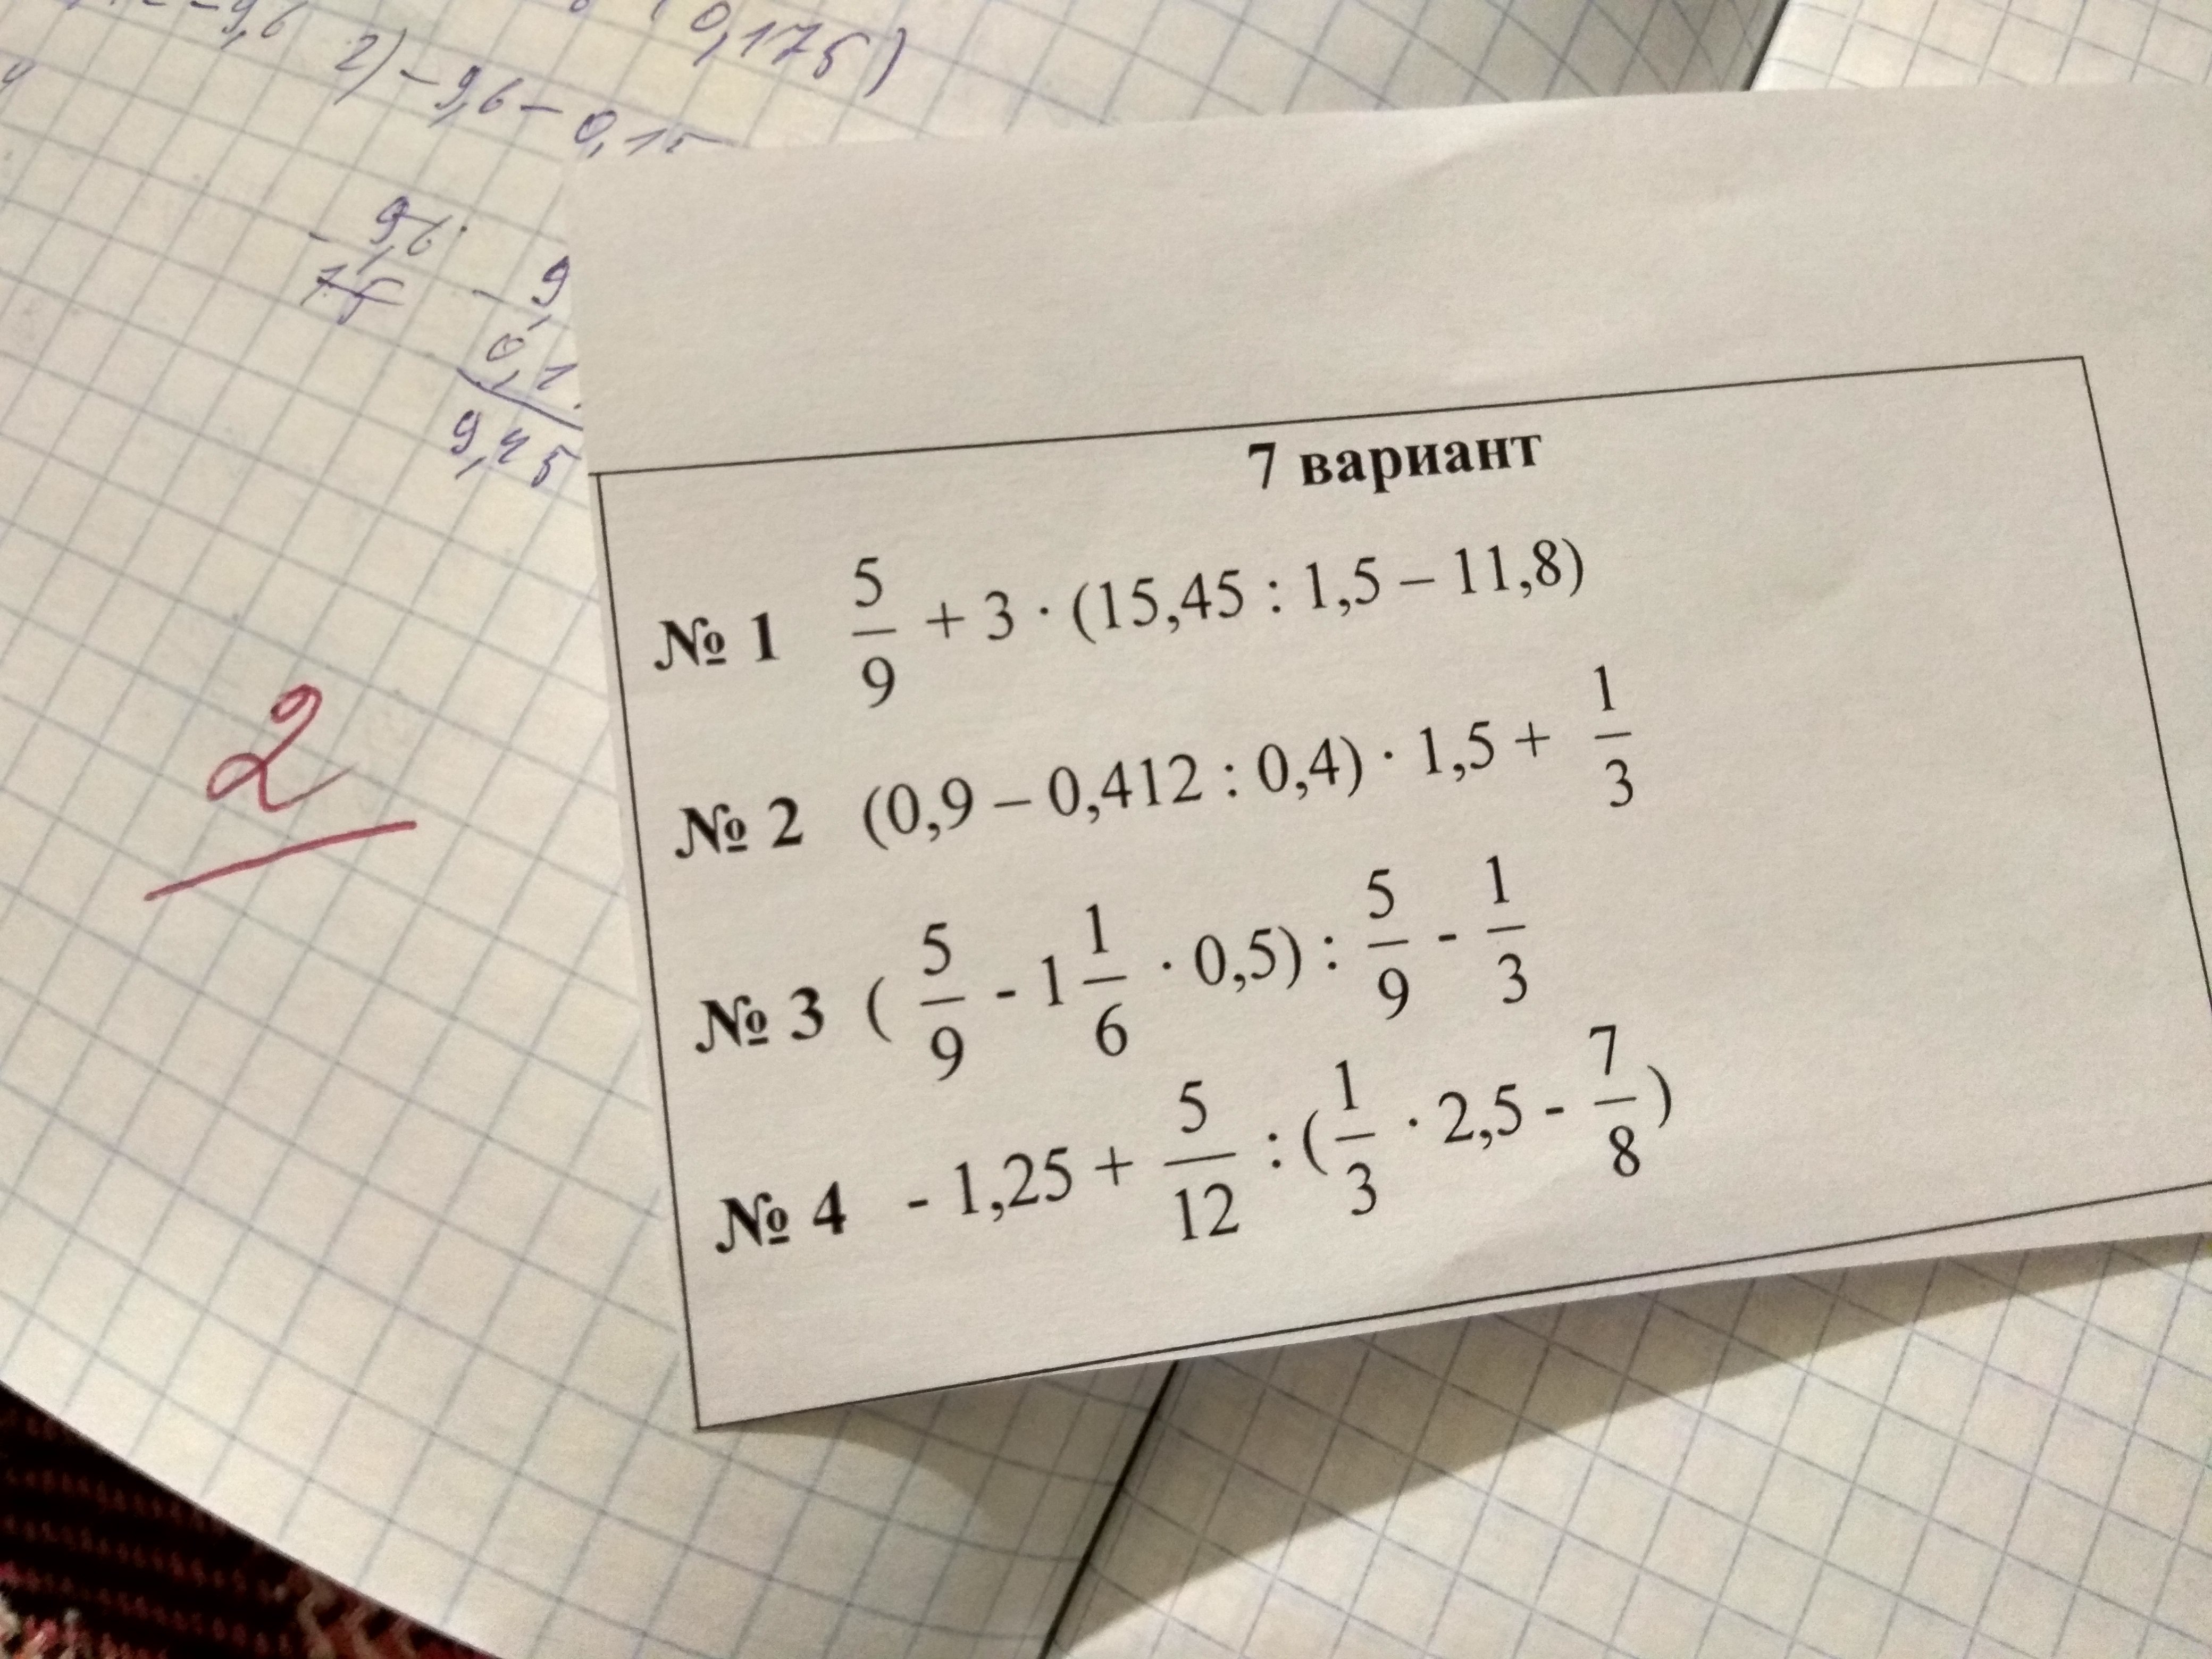 -9,6 2) -9,6 - 0,15
0,175)
9,6
75
- 9,
0,1
9,45
2
7 вариант
№ 1 5/9 + 3 · (15,45 : 1,5 – 11,8)
№ 2 (0,9 – 0,412 : 0,4) · 1,5 + 1/3
№ 3 ( 5/9 - 1 1/6 · 0,5) : 5/9 - 1/3
№ 4 - 1,25 + 5/12 : (1/3 · 2,5 - 7/8)